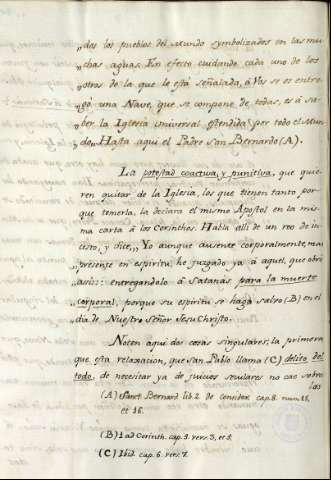 „dos los pueblos del Mundo symbolizados en las mu-
„chas aguas. En efecto cuidando cada uno de los
„otros de la que le está señalada, á Vos se os entre-
„gó una Nave, que se compone de todas, es á sa-
„ber la Iglesia universal estendida por todo el Mun-
„do„ Hasta aqui el Padre San Bernardo (A).
La potestad coactiva, y punitiva, que quie-
ren quitar de la Iglesia, los que tienen tanto por-
que temerla, la declara el mismo Apostol en la mis-
ma carta á los Corinthos. Habla alli de un reo de in-
cesto, y dice „ Yo aunque ausente corporalmente, mas
„presente en espiritu, he juzgado ya á aquel, que obró
„assi: entregandolo á Satanás para la muerte
„corporal, porque su espiritu se haga salvo (B) en el
„dia de Nuestro Señor Jesu Christo.
Noten aqui dos cosas singulares, la primera
que esta relaxacion, que San Pablo llama (C) delito del
todo, de necesitar ya de juicios seculares no cae sobre
los
(A) Sanct. Bernard. lib. 2. de consider. cap. 8. num. 15.
et 16.
(B) 1. ad Corinth. cap. 5. vers. 3. et 5.
(C) Ibid. cap. 6. vers. 7.